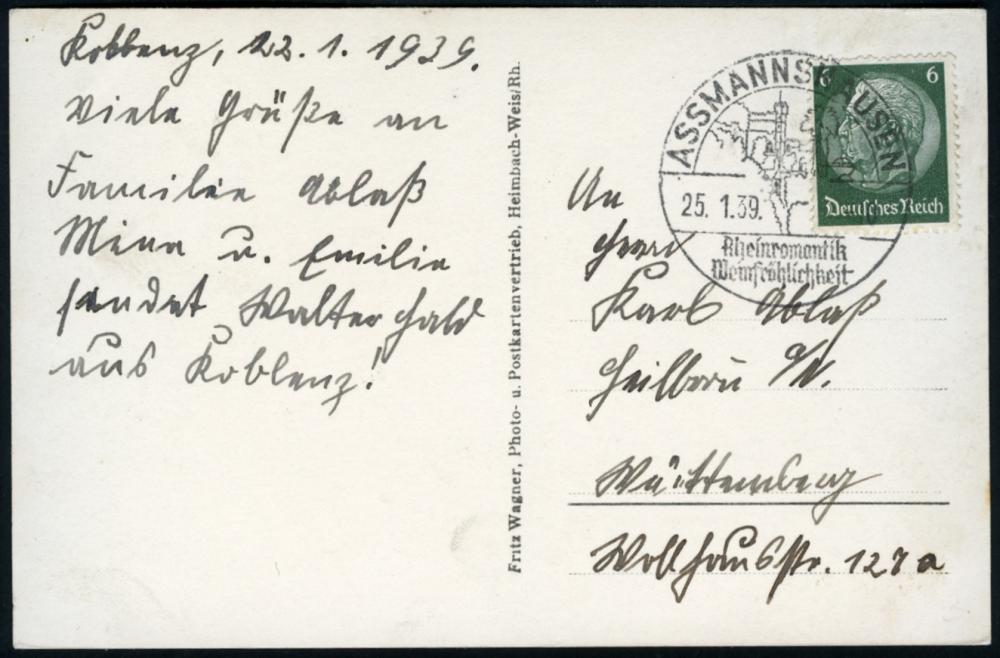 Koblenz, 22. 1. 1939.
Viele Grüße an
Familie Ablaß
Mina u. Emilie
sendet Walter Hald
aus Koblenz!
Fritz Wagner, Photo- u. Postkartenvertrieb, Heimbach-Weis/Rh.
ASSMANNSHAUSEN
25. 1. 39.
Rheinromantik
Weinfröhlichkeit
6 6
Deutsches Reich
An
Herrn
Karl Ablaß
Heilbronn a/N.
Württemberg
Wollhausstr. 127 a